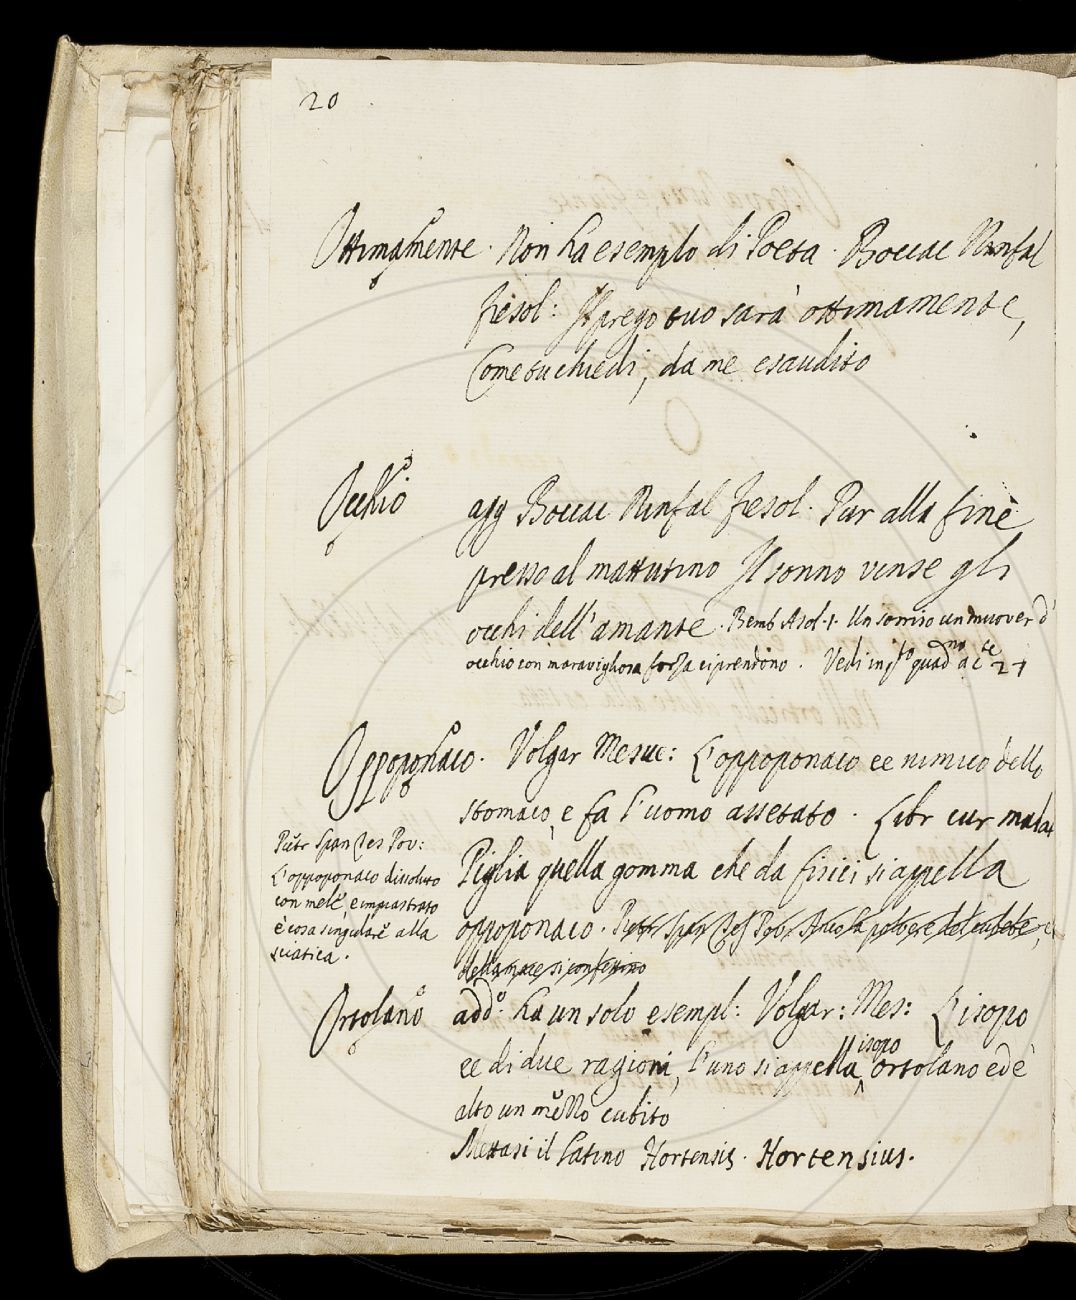 20
Ottimamente. Non ha esemplo di Poeta. Boccac Ninfal
fiesol: Il prego tuo sarà ottimamente,
Come tu chiedi, da me esaudito
Occhio agg Boccac Ninfal fiesol. Pur alla fine
presso al mattutino Il sonno vinse gli
occhi dell'amante. Bemb Asol. 1. Un sorriso un muover d'
occhio con maravigliosa forza ci prendono. Vedi in qsto quadno a cte 21
Oppoponaco. Volgar Mesue: L'oppoponaco ee nimico dello
stomaco, e fa l'uomo assetato. Libr cur malat
Piglia quella gomma che da fisici si appella
oppoponaco. Pietr Span Tes Pov. Anco la polvere del cubebe, e
della mace si confettino
Pietr Span Tes Pov:
L'oppoponaco dissoluto
con mele e impiastrato
è cosa singulare alla
sciatica.
Ortolano add.o ha un solo esempl: Volgar: Mes: L'isopo
ee di due ragioni, l'uno si appella isopo ortolano ed è
alto un mezzo cubito
Mettasi il Latino Hortensis. Hortensius.